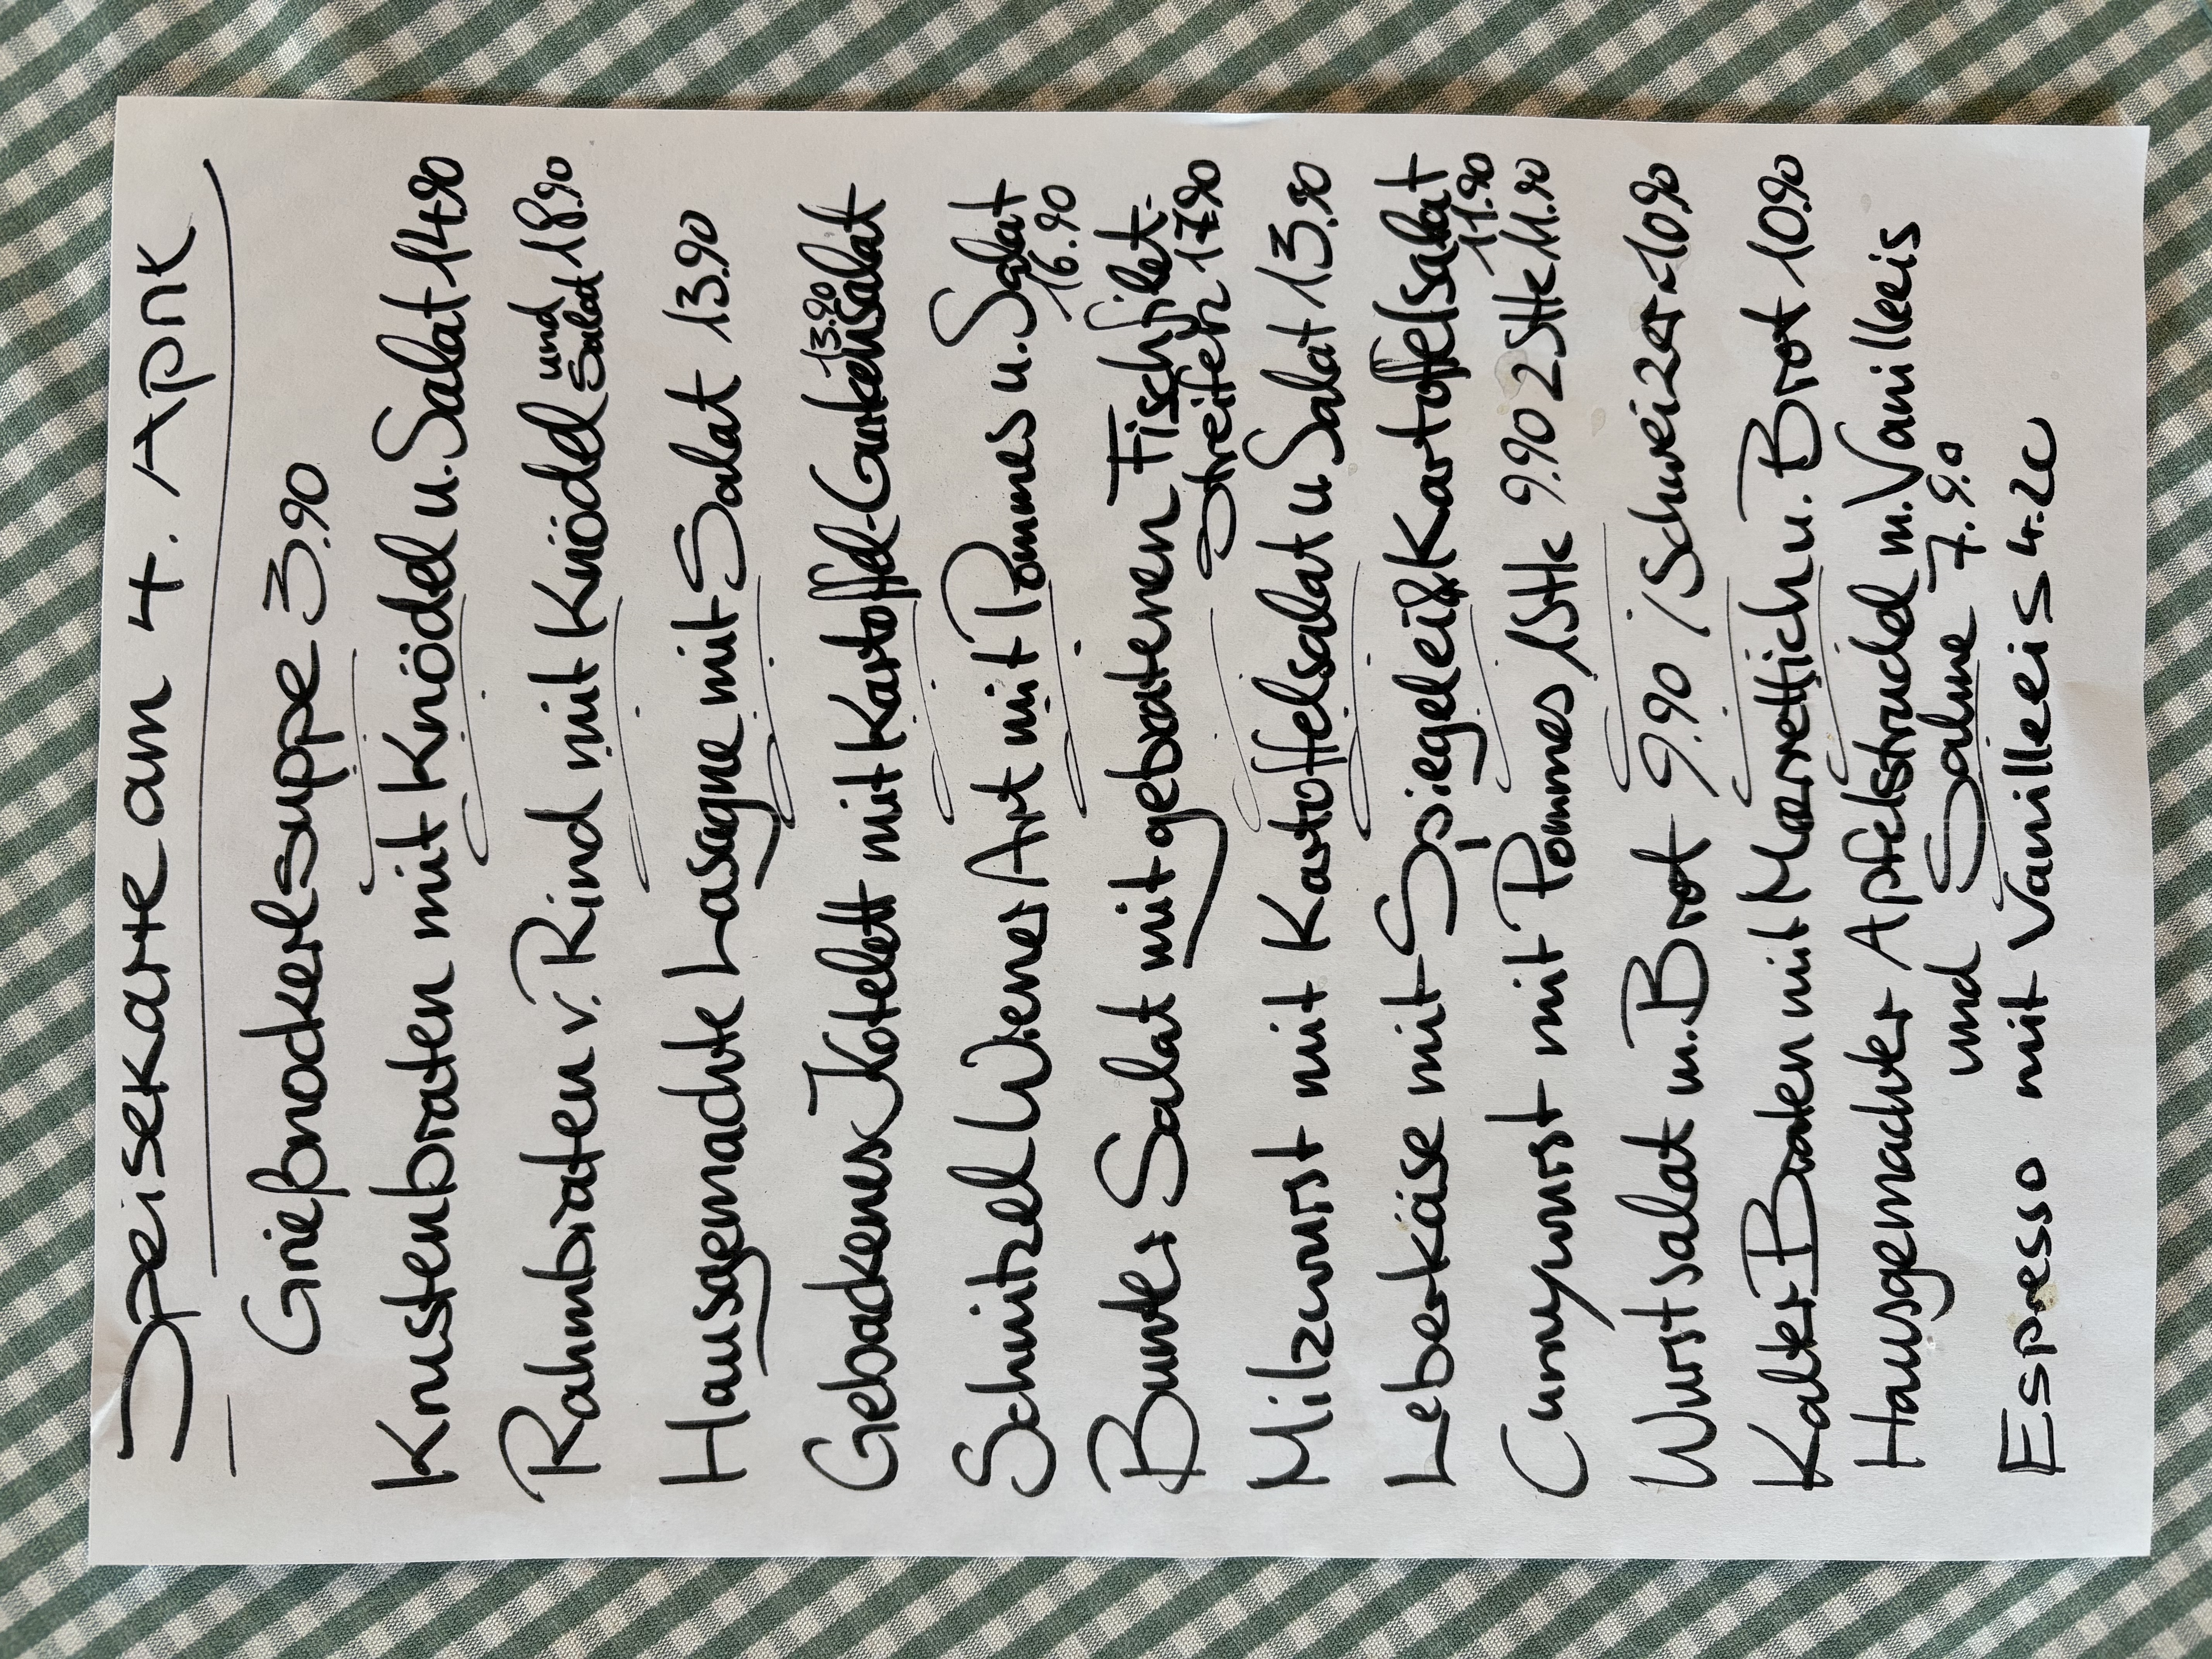 Speisekarte am 4. April
Grießnockerlsuppe 3.90
Krustenbraten mit Knödel u. Salat 14.90
Rahmbraten v. Rind mit Knödel und Salat 18.90
Hausgemachte Lasagne mit Salat 13.90
Gebackenes Kotelett mit Kartoffel-Gurkensalat 13.90
Schnitzel Wiener Art mit Pommes u. Salat
16.90
Bunter Salat mit gebratenen Fischfilet-
streifen 17.90
Milzwurst mit Kartoffelsalat u Salat 13.90
Leberkäse mit Spiegelei & Kartoffelsalat
11.90
Currywurst mit Pommes 1Stk 9.90 2Stk 11.90
Wurstsalat m. Brot 9.90 / Schweizer 10.90
Kalter Braten mit Meerrettich u. Brot 10.90
Hausgemachter Apfelstrudel m. Vanilleeis
und Sahne 7.90
Espresso mit Vanilleeis 4.20